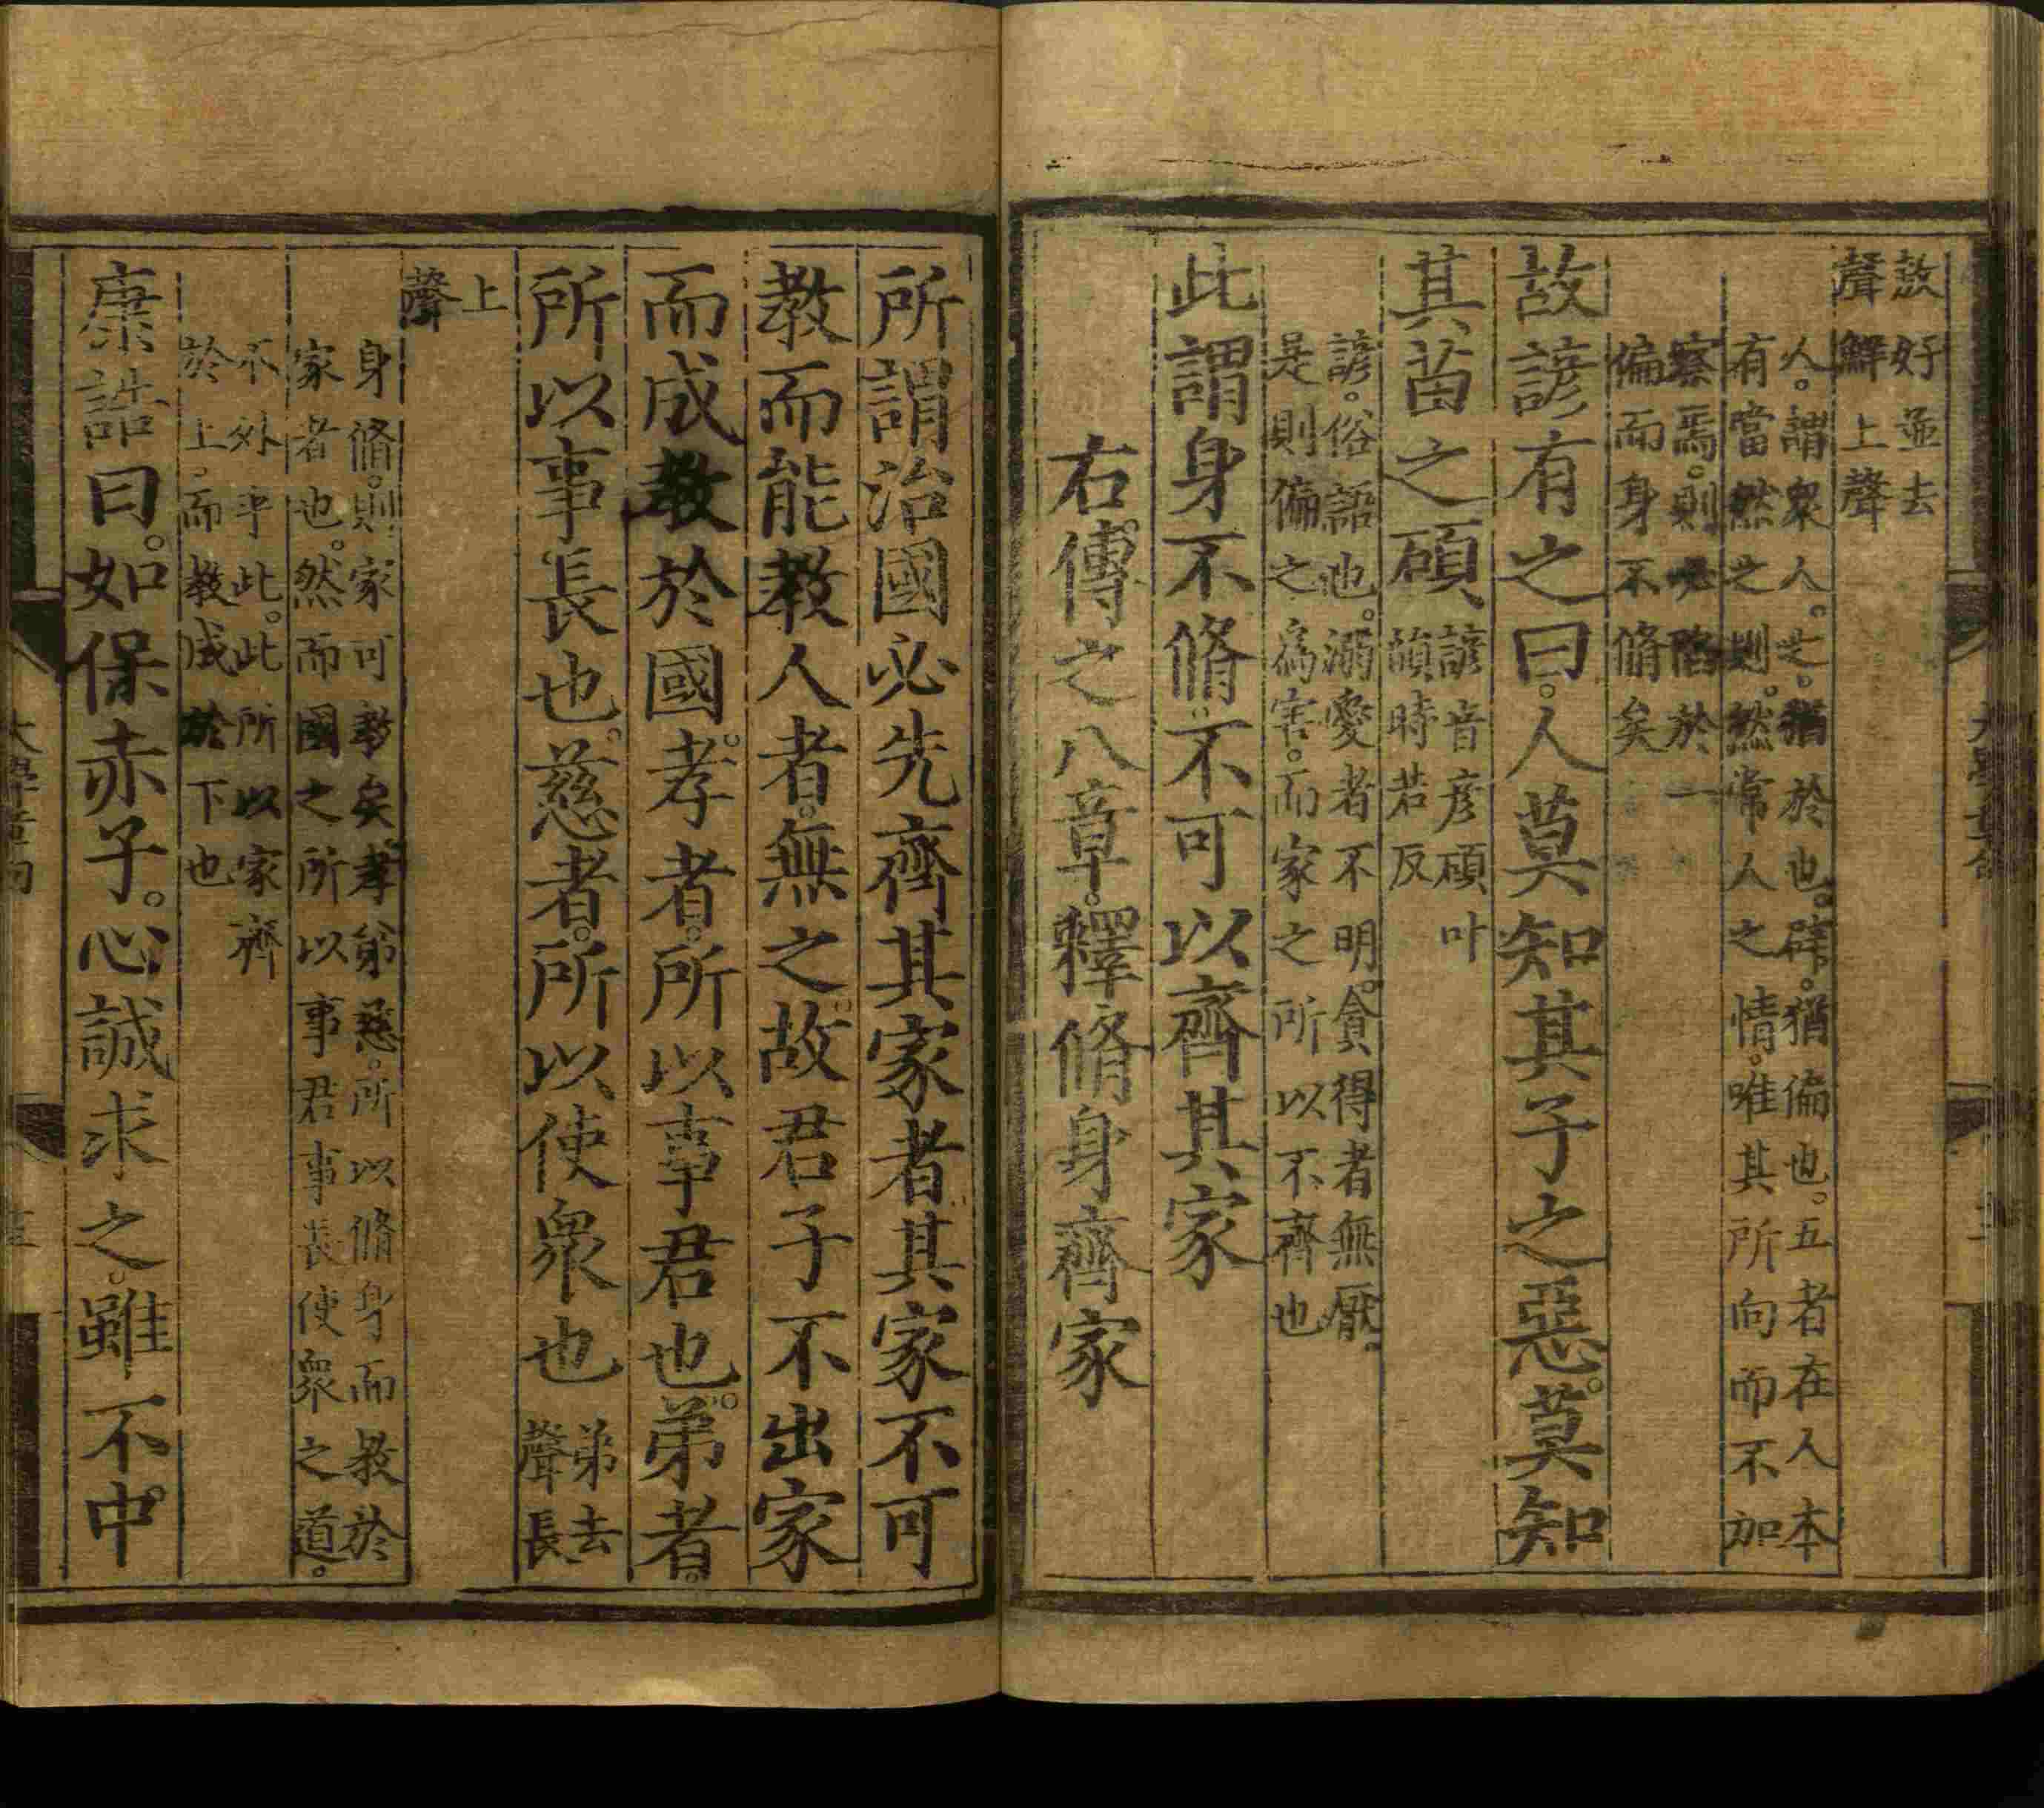 敖好並去
聲鮮上聲
人。謂衆人。之。猶於也。辟。猶偏也。五者在人本
有當然之則。然常人之情。唯其所向而不加
察焉。則必陷於一
偏而身不脩矣
故諺有之曰。人莫知其子之惡。莫知
其苗之碩
諺音彥碩叶
韻時若反
諺。俗語也。溺愛者不明。貪得者無厭。
是則偏之爲害。而家之所以不齊也
此謂身不脩。不可以齊其家
右傳之八章。釋脩身齊家
所謂治國必先齊其家者。其家不可
教而能教人者。無之。故君子不出家
而成教於國。孝者。所以事君也。弟者。
所以事長也。慈者。所以使衆也
弟去
聲長
上
聲
身脩。則家可教矣。孝弟慈。所以脩身而教於
家者也。然而國之所以事君事長使衆之道。
不外乎此。此所以家齊
於上。而教成於下也
康誥曰。如保赤子。心誠求之。雖不中
大學章句